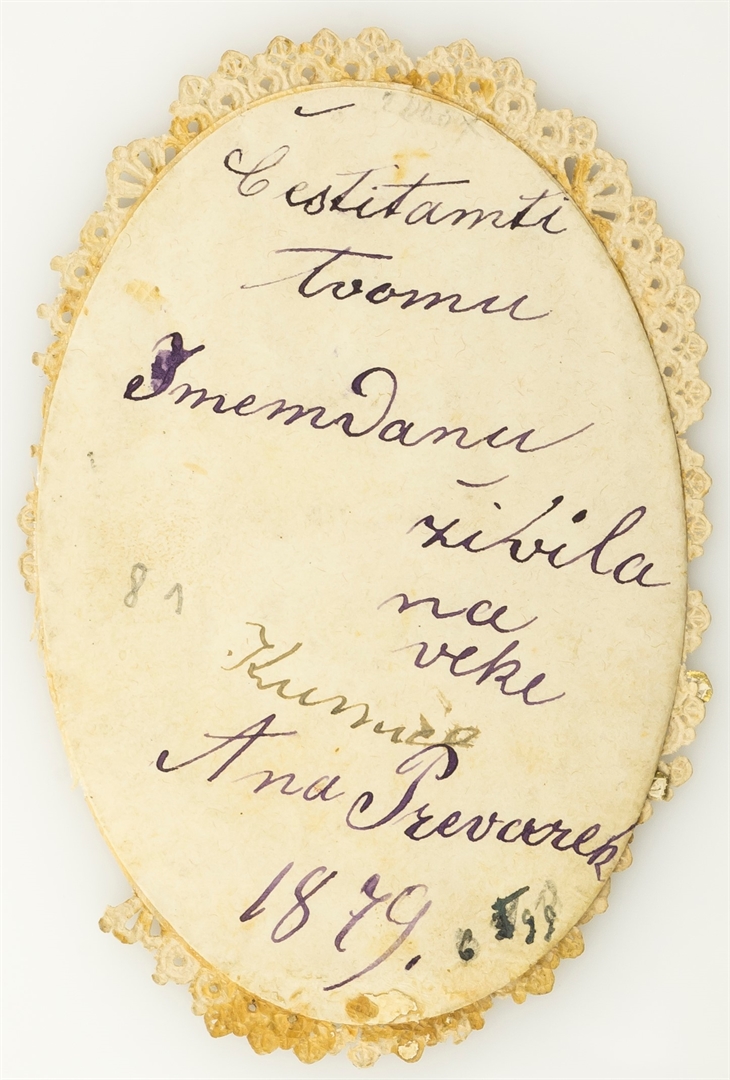 Čestitamti
tvomu
Imemdanu
živila
na
veke
81
Kumica
Ana Prevarek
1879.